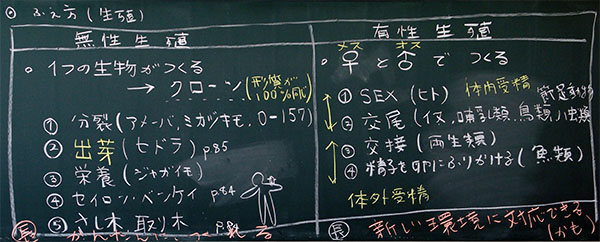 ふえ方(生殖)
無性生殖
○ 1つの生物がつくる
→ クローン(形質が100%同じ)
① 分裂(アメーバ,ミカヅキモ,O-157)
② 出芽(ヒドラ) p85
③ 栄養(ジャガイモ)
④ セイロン・ベンケイ p84
⑤ さし木 取り木
長
有性生殖
メス オス
○ ♀と♂で つくる
① SEX(ヒト) 体内受精
② 交尾(イヌ,哺乳類,鳥類,ハ虫類
③ 交接(両生類)
④ 精子を卵にふりかける(魚類)
体外受精
長 新しい環境に対応できる
(かも)